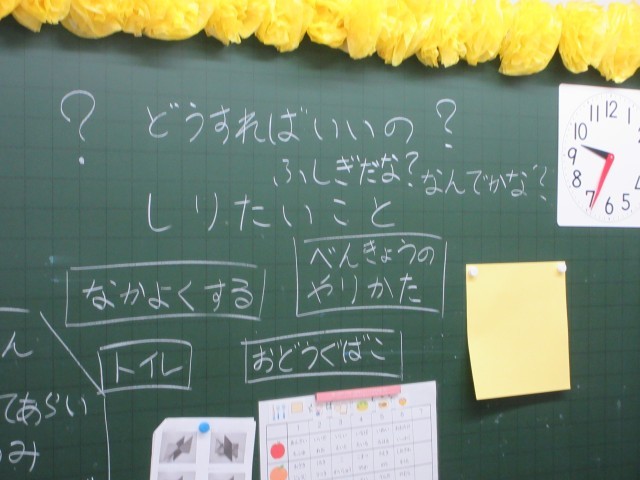 ? どうすればいいの?
ふしぎだな? なんでかな?
しりたいこと
なかよくする
べんきょうの
やりかた
トイレ
おどうぐばこ
ん
てあらい
み
10 11 12
9
8
7 6 5
1 2 3 4 5 6 7